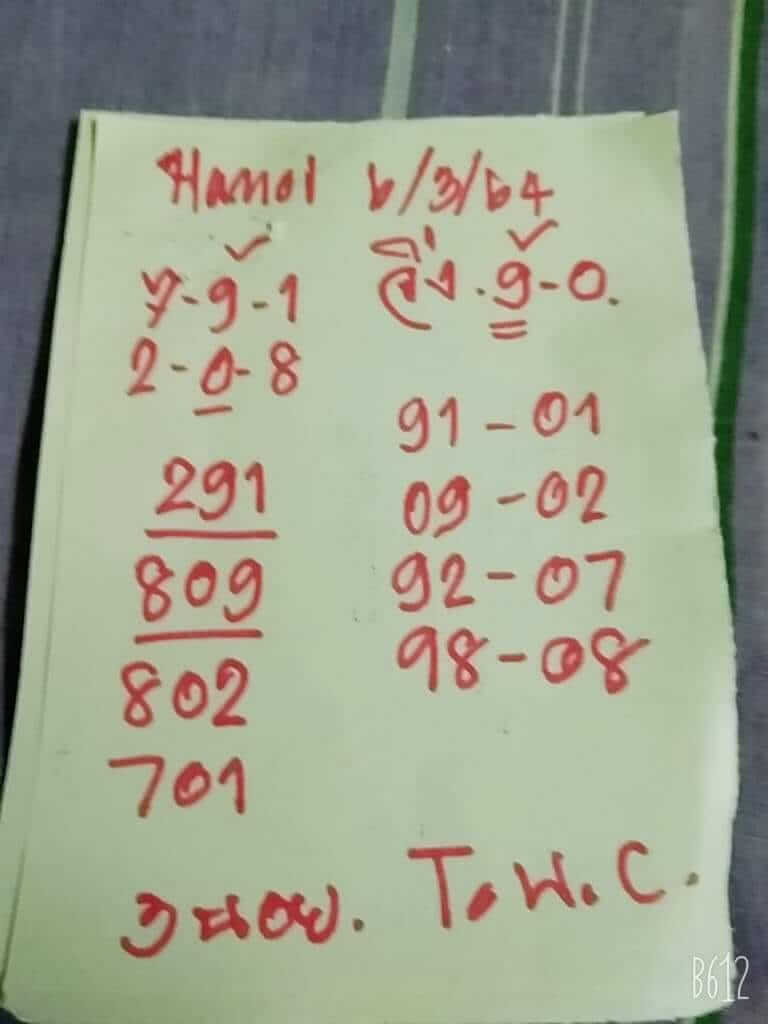 Hanoi 6/3/64
7-9-1
2-0-8
วิ่ง.9-0.
291
809
802
701
91-01
09-02
92-07
98-08
T.พ.C.
B612